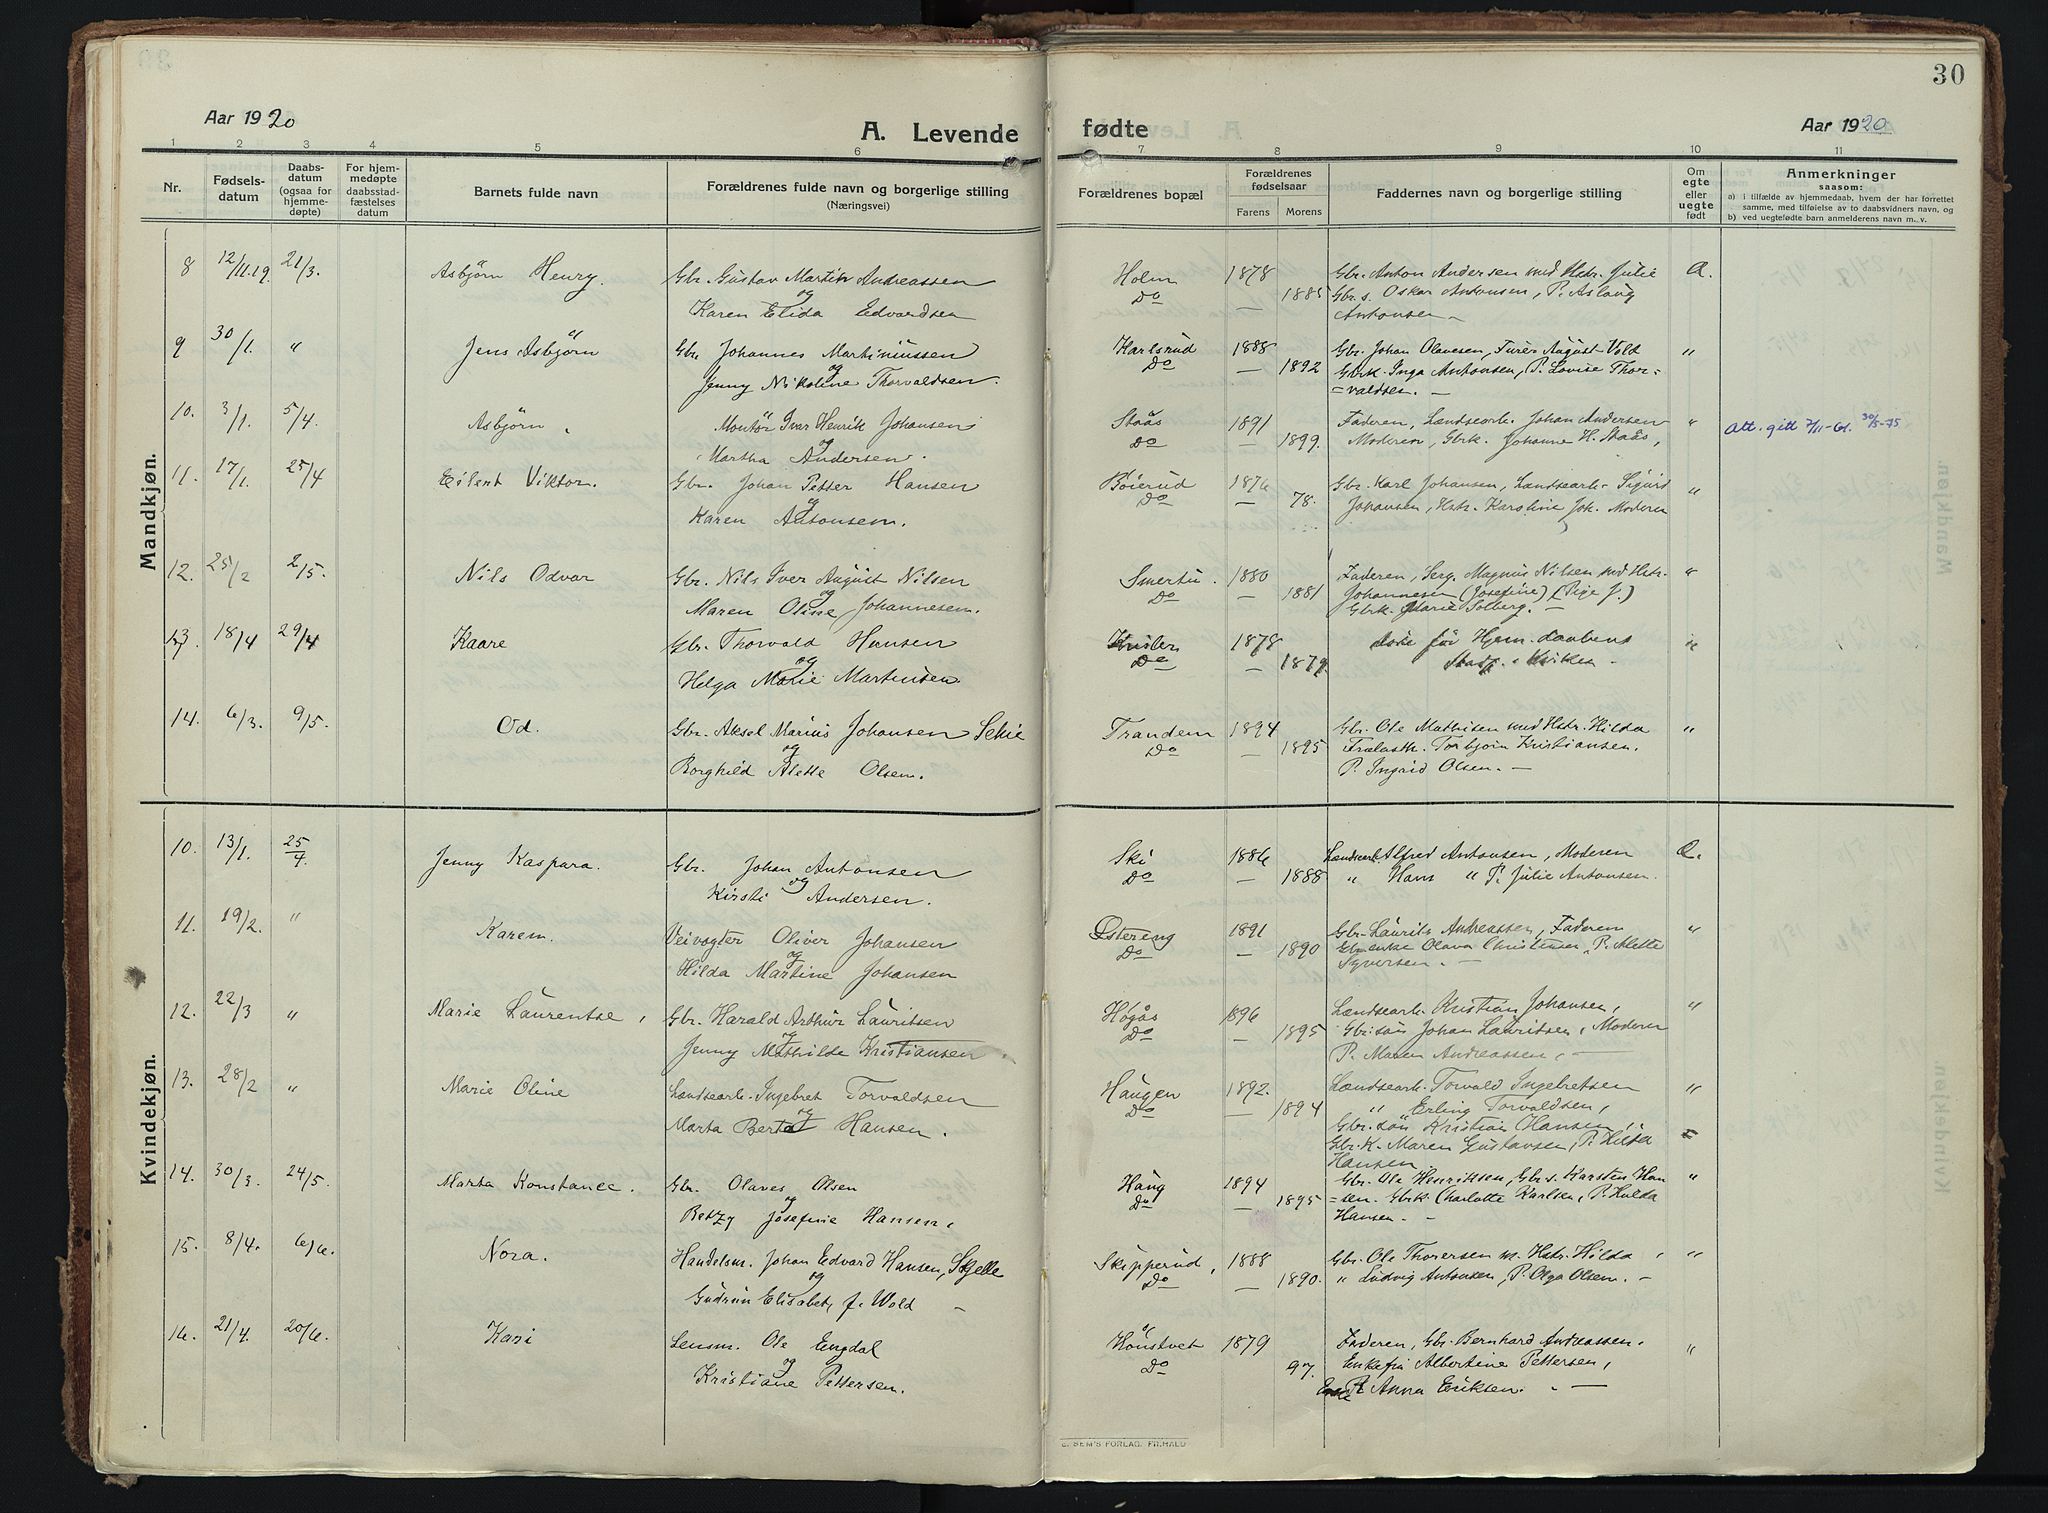 30
Aar 1920
A. Levende fødte
Aar 1920
1 2 3 4 5 6 7 8 9 10 11
Nr.
Fødsels-
datum
Daabs-
datum
(ogsaa for
hjemme-
døpte)
For hjem-
medøpte
daabsstad-
fæstelses
datum
Barnets fulde navn
Forældrenes fulde navn og borgerlige stilling
(Næringsvei)
Forældrenes bopæl
Forældrenes
fødselsaar
Farens Morens
Faddernes navn og borgerlige stilling
Om
egte
eller
uegte
født
Anmerkninger
saasom:
a) i tilfælde av hjemmedaab, hvem der har forrettet
samme, med tilføielse av to daabsvidners navn, og
b) ved uegtefødte barn anmelderens navn m. v.
Mandkjøn.
8 12/11.19. 21/3. Asbjørn Henry. Gbr. Gustav Martin Andreassen Holm 1878 Gbr. Anton Andersen med Hstr. Julie
og Do — 1885 Gbr.s. Oskar Antonsen, P. Aslaug
Karen Elida Edvardsen Antonsen —
9 30/1. " Jens Asbjørn Gbr. Johannes Martiniussen Karlsrud 1888 Gbr. Johan Olavesen, August Vold "
og Do — 1892 Gbrk. Inga Antonsen, P. Lovise Thor=
Jenny Nikoline Thorvaldsen. =valdsen. —
10. 3/1. 5/4. Asbjørn. Montør Ivar Henrik Johansen Staås 1891 Faderen, Landsearb. Johan Andersen " Att. gitt 7/11-61. 30/5-75
og Do — 1899. Moderen, Gbrk. Johanne H. Staås,
Martha Andersen.
11. 17/1. 25/4 Eilert Viktor. Gbr. Johan Petter Hansen Bøierud 1876 Gbr. Karl Johansen, Landsearb. Sigurd "
og Do — 78. Johansen, Hstr. Karoline Joh. Moderen
Karen Antonsen.
12. 25/2 2/5. Nils Odvar Gbr. Nils Iver August Nilsen Smertu. 1880 Faderen, Serg. Magnus Nilsen med Hstr. "
og Do — 1881 Johannesen (Josefine) (Pige J.)
Maren Oline Johannesen. Gbrk. Marie Solberg. —
13. 18/4 29/4 Kaare Gbr. Thorvald Hansen 1878 for Hjem. daabens "
og Do — 1879
Helga Marie Martinsen.
14. 6/3. 9/5. Od. Gbr. Aksel Marius Johansen Trandem 1894 Gbr. Ole Mathisen med Hstr. Hilda "
og Do — 1895 Torbjørn Kristiansen.
Borghild Alette Olsen. P. Ingrid Olsen. —
Kvindekjøn.
10. 13/1. 25/4. Jenny Kaspara. Gbr. Johan Antonsen Ski 1886 Landsearb. Alfred Antonsen, Moderen
og Do — 1888 " Hans " P. Julie Antonsen.
Kirsti Andersen.
11. 19/2. " Karen. Veivogter Oliver Johansen Østereng 1891 Gbr. Laurits Andreassen, Faderen "
og Do — 1890 Gbrenke Olava Christensen, P. Alette
Hilda Martine Johansen Syversen. —
12. 22/3 " Marie Laurentse, Gbr. Harald Arthur Lauritsen Høgås 1896 Landsearb. Kristian Johansen, "
og Do — 1895 Gbr.søn Johan Lauritsen, Moderen
Jenny Mathilde Kristiansen. P. Maren Andreassen, —
13. 28/2 " Marie Oline Landsearb. Ingebret Torvaldsen Haugen 1892. Landsearb. Torvald Ingebretsen "
og Do — 1894 " Erling Torvaldsen,
Marta Berta Hansen. Gbr. søn Kristian Hansen,
Gbr.K. Maren Gustavsen, P. Hilda
Hansen
14. 30/3. 24/5. Marta Konstance. Gbr. Olaves Olsen Haug 1894 Gbr. Ole Henriksen, Gbr.s. Karsten Han "
og Do — 1895 =sen. Gbrk. Charlotte Karlsen, P. Hulda
Betzy Josefine Hansen. Hansen. —
15. 8/4. 6/6. Nora. Handelsm. Johan Edvard Hansen, Skjelle Skipperud, 1888 Gbr. Ole Thorersen m. Hstr. Hilda, "
og Do — 1890. " Ludvig Antonsen, P. Olga Olsen. —
Gudrun Elisabet, f. Wold —
16. 21/4. 20/6. Kari Lensm. Ole Engdal Kønstvet 1879 Faderen, Gbr. Bernhard Andreassen. "
og Do 97. Enkefru Albertine Pettersen,
Kristiane Pettersen. Anna Eriksen. —
E. SEM'S FORLAG. FR.HALD